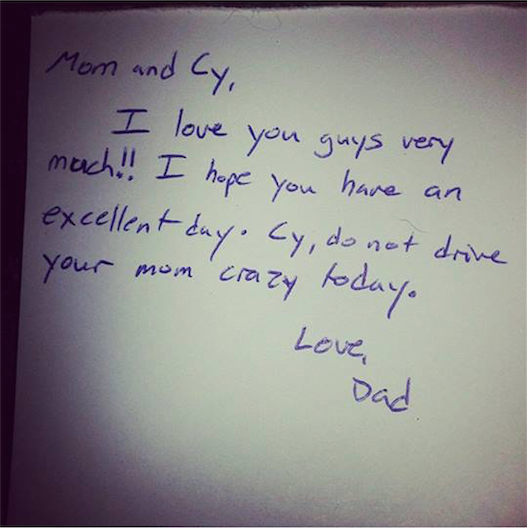 Mom and Cy,
I love you guys very
much!! I hope you have an
excellent day. Cy, do not drive
your mom crazy today.
Love,
Dad